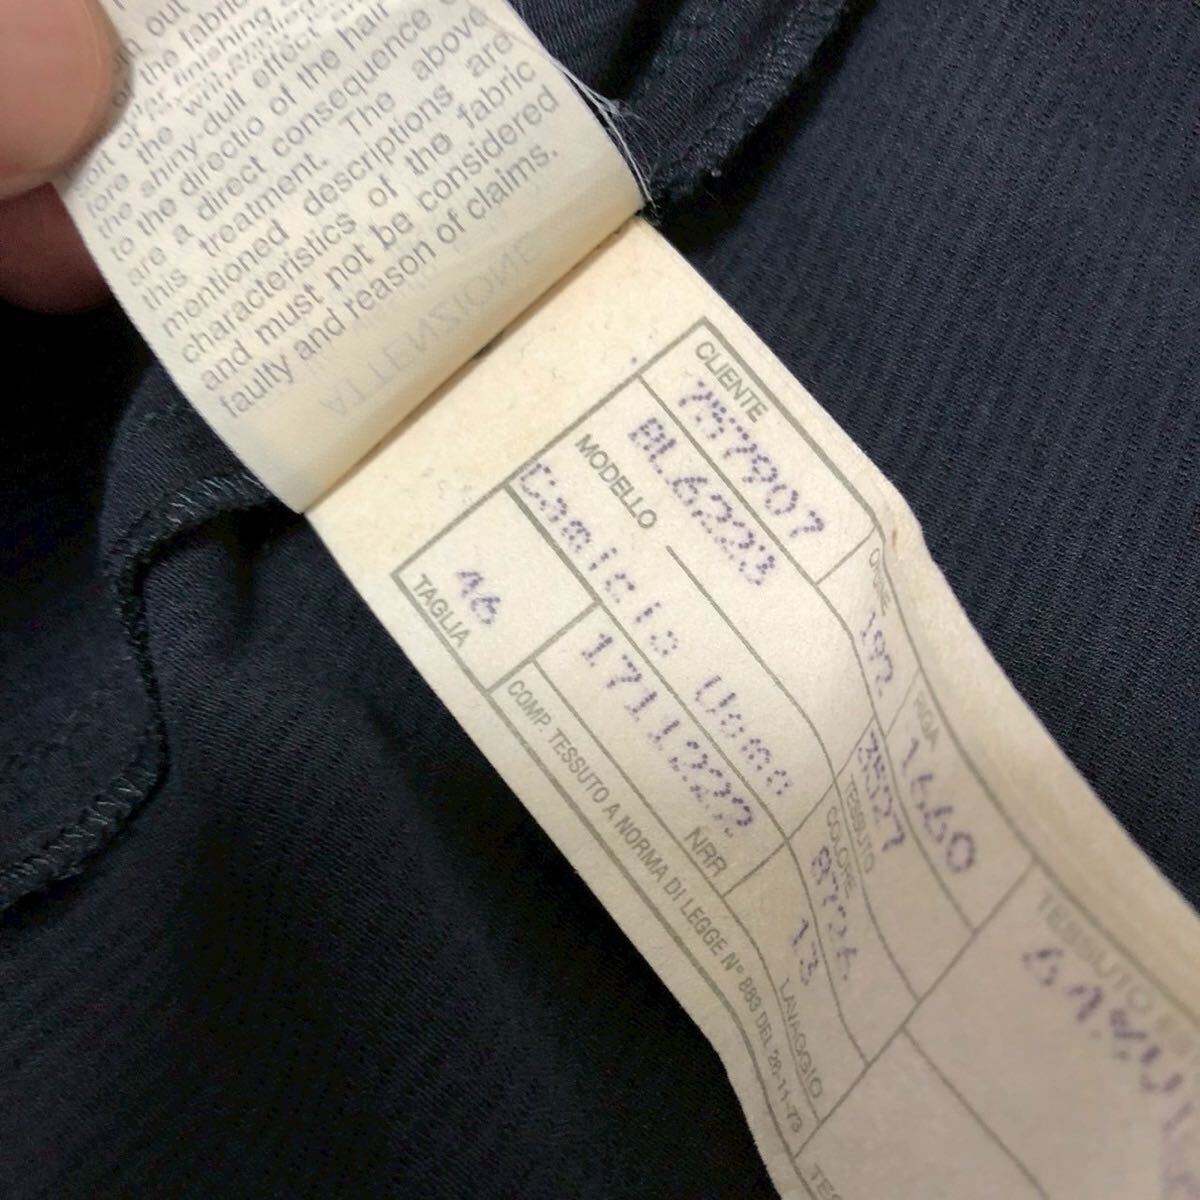 out
the fabric
finishing
fore the
the shiny-dull effect
to the directio of the hair
are a direct consequence
this treatment. The above
mentioned descriptions are
characteristics of the fabric
and must not be considered
faulty and reason of claims.
ATTENZIONE
CLIENTE
757907
ORDINE
192
RIGA
1660
MODELLO
BL6223
Camicia Uomo
TESSUTO
ZR527
TAGLIA
46
1711222
NRR
COLORE
8726
13
LAVAGGIO
COMP. TESSUTO A NORMA DI LEGGE N° 883 DEL 26-11-73
TESSUTO